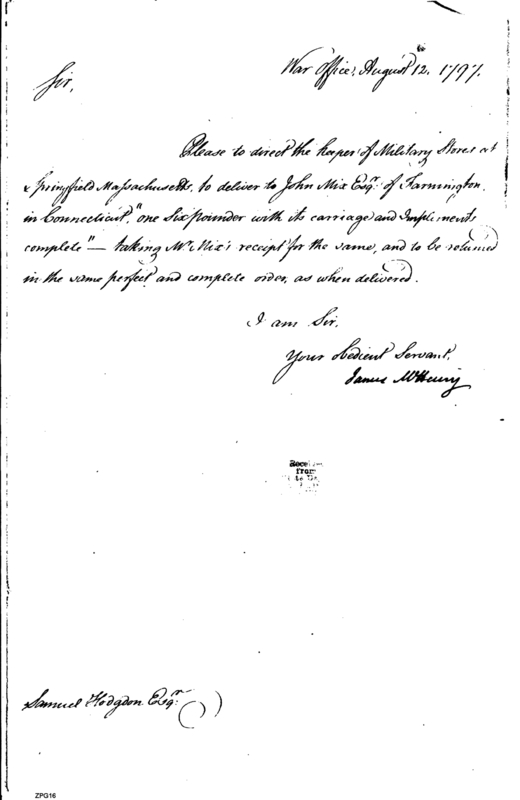 War Office, August 12th. 1797.
Sir,
Please to direct the keeper of Military Stores at
Springfield Massachusetts, to deliver to John Mix Esqr. of Farmington
in Connecticut, "one Six pounder with its carriage and Implements
complete" — taking Mr. Mix's receipt for the same, and to be returned
in the same perfect and complete order, as when delivered.
I am Sir,
Your Obedient Servant,
James McHenry
Received
from
Samuel Hodgdon Esqr.
ZPG16